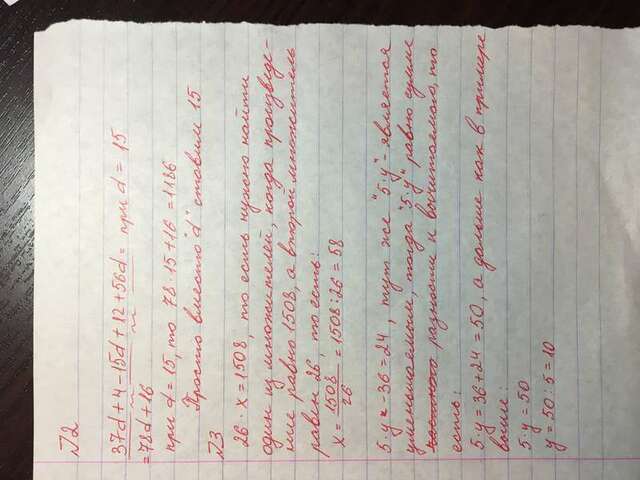 П2
37d + 4 - 15d + 12 + 56d = при d = 15
= 78d + 16
при d = 15, то 78 · 15 + 16 = 1186
Просто вместо "d" ставим 15
П3
26 · х = 1508, то есть нужно найти
один из множителей, когда произведе-
ние равно 1508, а второй множитель
равен 26, то есть:
х = 1508/26 = 1508 : 26 = 58
5 · у - 36 = 24, тут же "5·у" - является
уменьшаемым, тогда "5·у" равно сумме
частного разности и вычитаемого, то
есть:
5 · у = 36 + 24 = 50, а дальше как в примере
выше:
5 · у = 50
у = 50 : 5 = 10